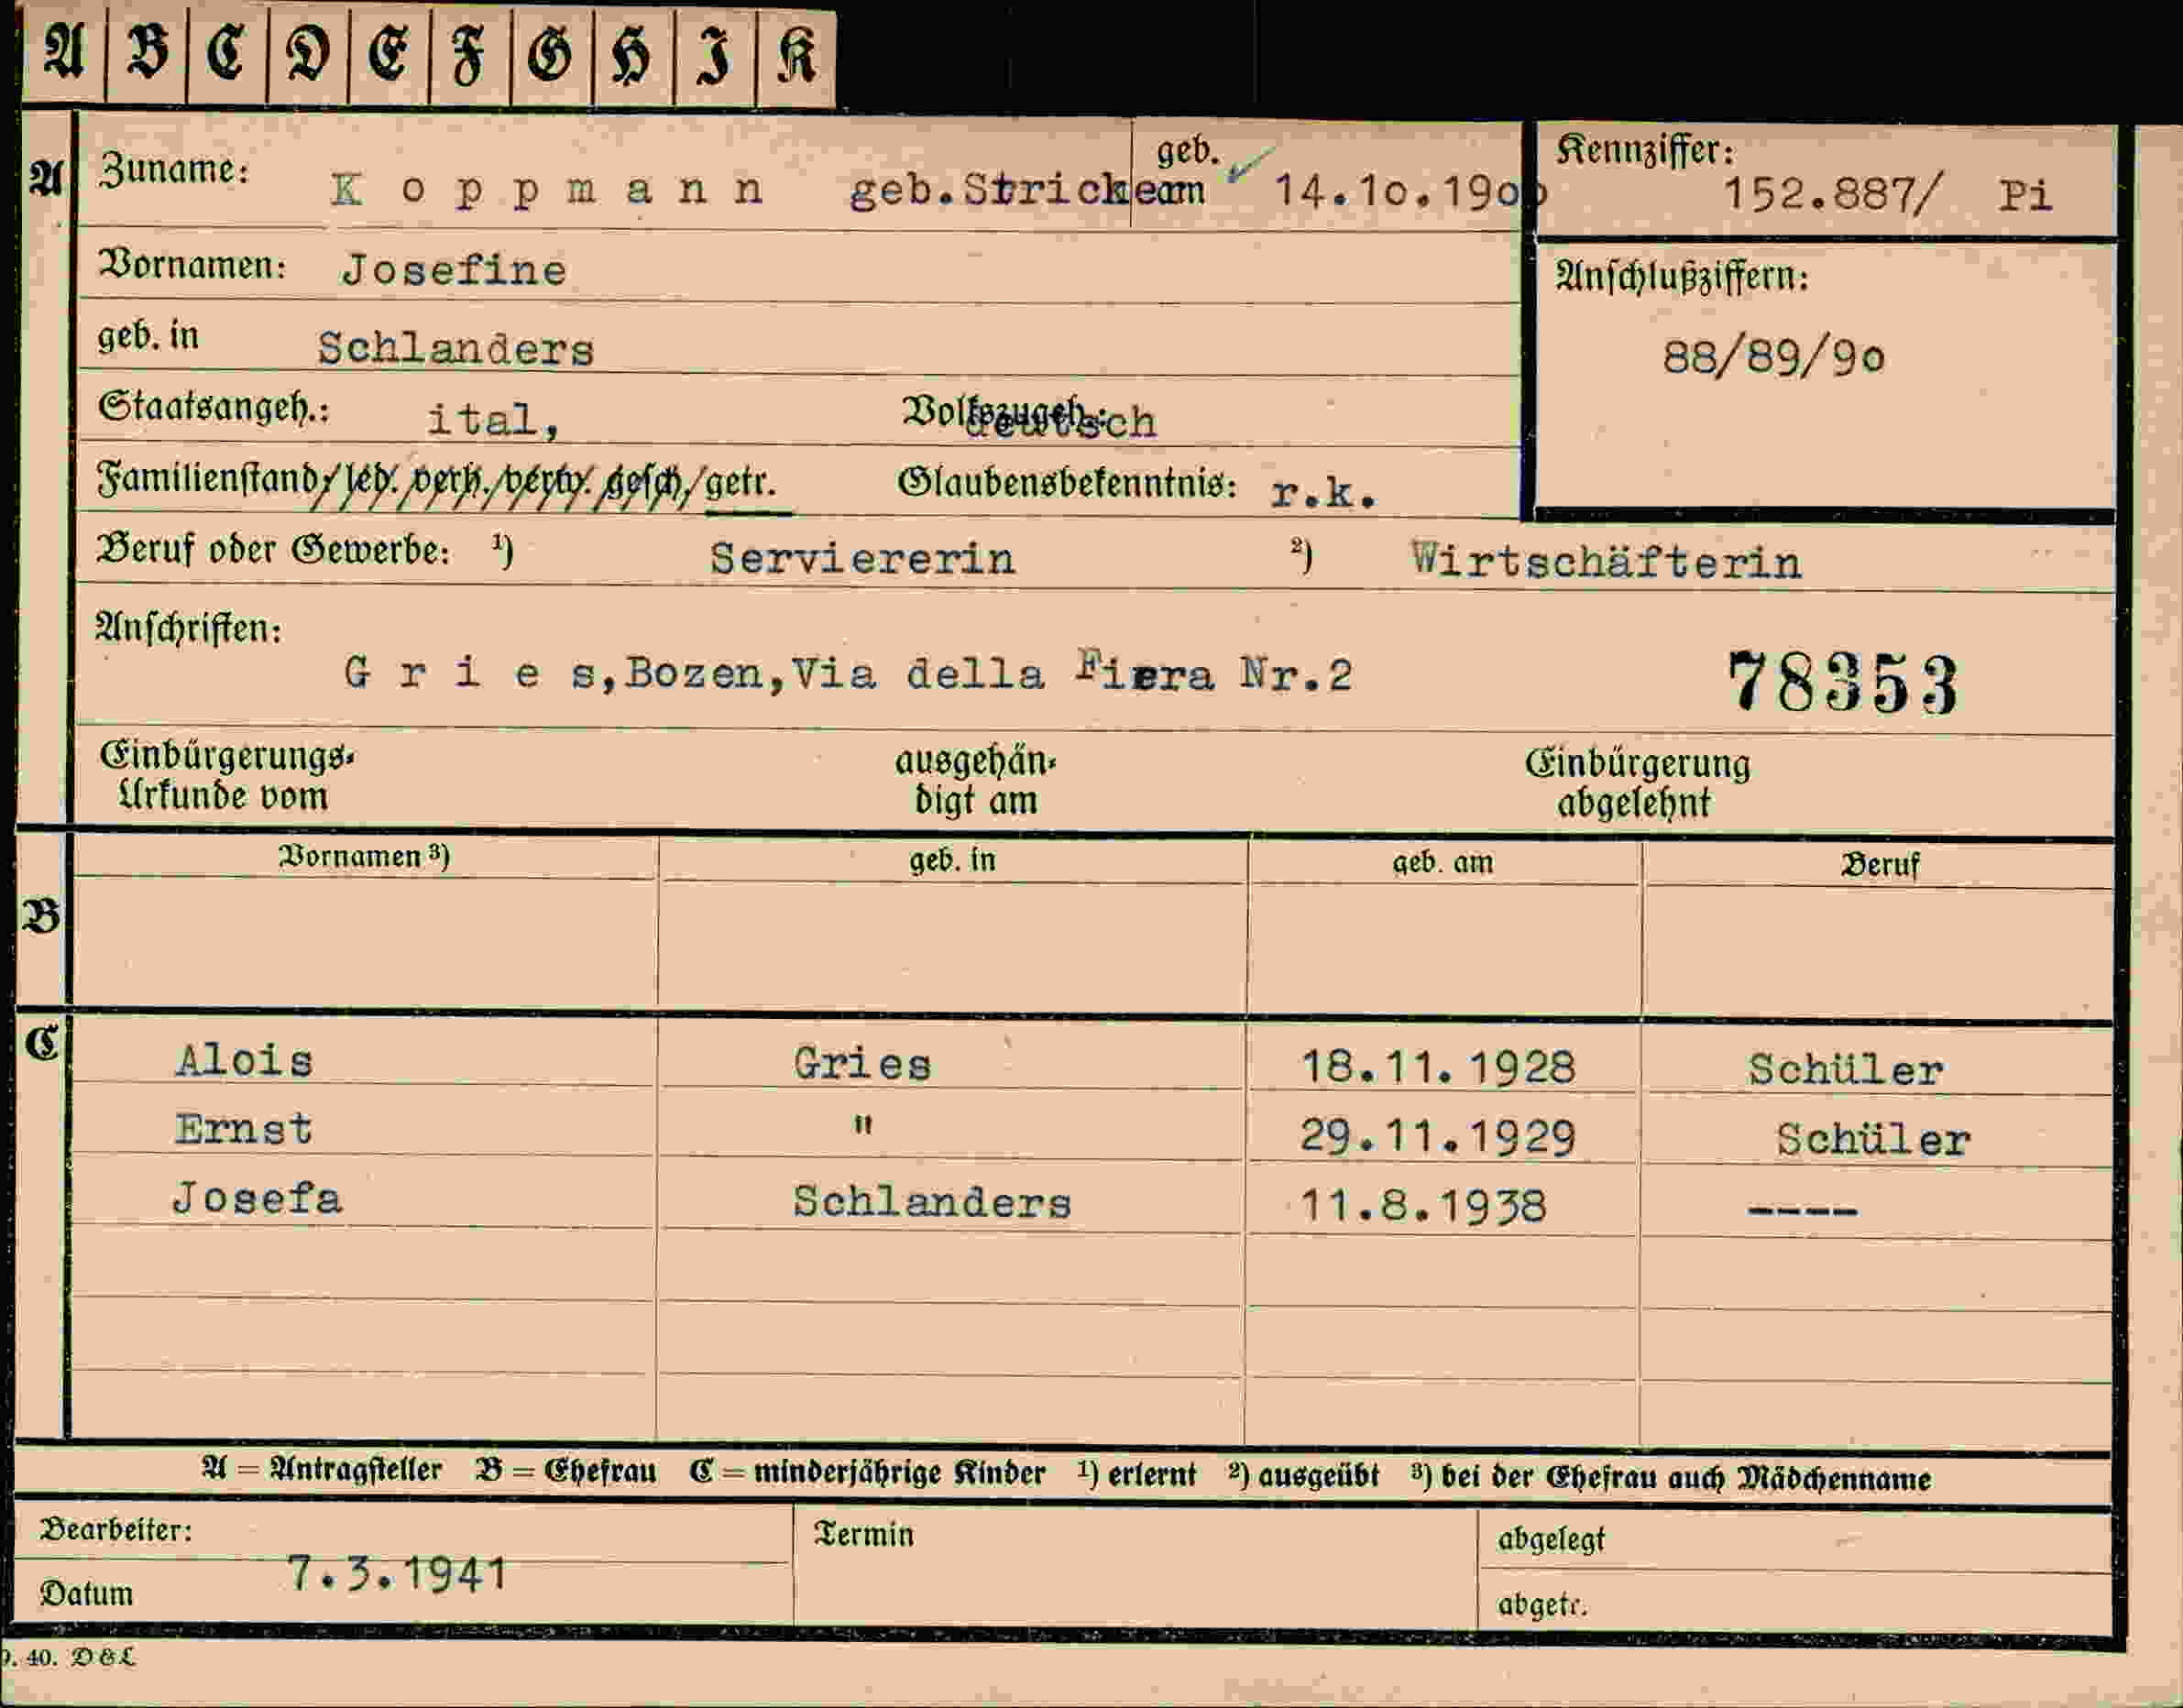 A B C D E F G H I K
A Zuname: Koppmann geb. Stricker geb. am 14.10.1900 Kennziffer: 152.887/ Pi
Vornamen: Josefine Anschlußziffern:
geb. in Schlanders 88/89/90
Staatsangeh.: ital, Volkszugeh.: deutsch
Familienstand/led./verh./verw./gesch./getr. Glaubensbekenntnis: r.k.
Beruf oder Gewerbe: ¹) Serviererin ²) Wirtschäfterin
Anschriften:
Gries,Bozen,Via della Fiera Nr.2 78353
Einbürgerungs- ausgehän- Einbürgerung
Urkunde vom digt am abgelehnt
Vornamen ³) geb. in geb. am Beruf
B
C Alois Gries 18.11.1928 Schüler
Ernst " 29.11.1929 Schüler
Josefa Schlanders 11.8.1938 ----
A = Antragsteller B = Ehefrau C = minderjährige Kinder ¹) erlernt ²) ausgeübt ³) bei der Ehefrau auch Mädchenname
Bearbeiter: Termin abgelegt
7.3.1941
Datum abgetr.
40. D & L